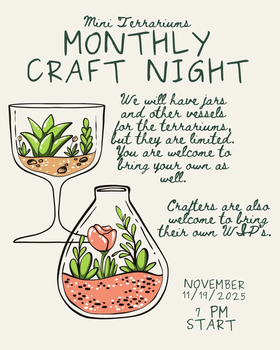 Mini Terrariums
MONTHLY
CRAFT NIGHT
We will have jars
and other vessels
for the terrariums,
but they are limited.
You are welcome to
bring your own as
well.
Crafters are also
welcome to bring
their own WIP's.
NOVEMBER
11/19/2025
7 PM
START